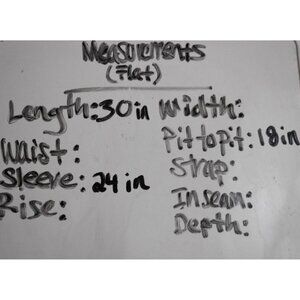 Measurements
(Flat)
Length: 30 in
Waist:
Sleeve: 24 in
Rise:
Width:
Pit to pit: 18 in
Strap:
Inseam:
Depth: